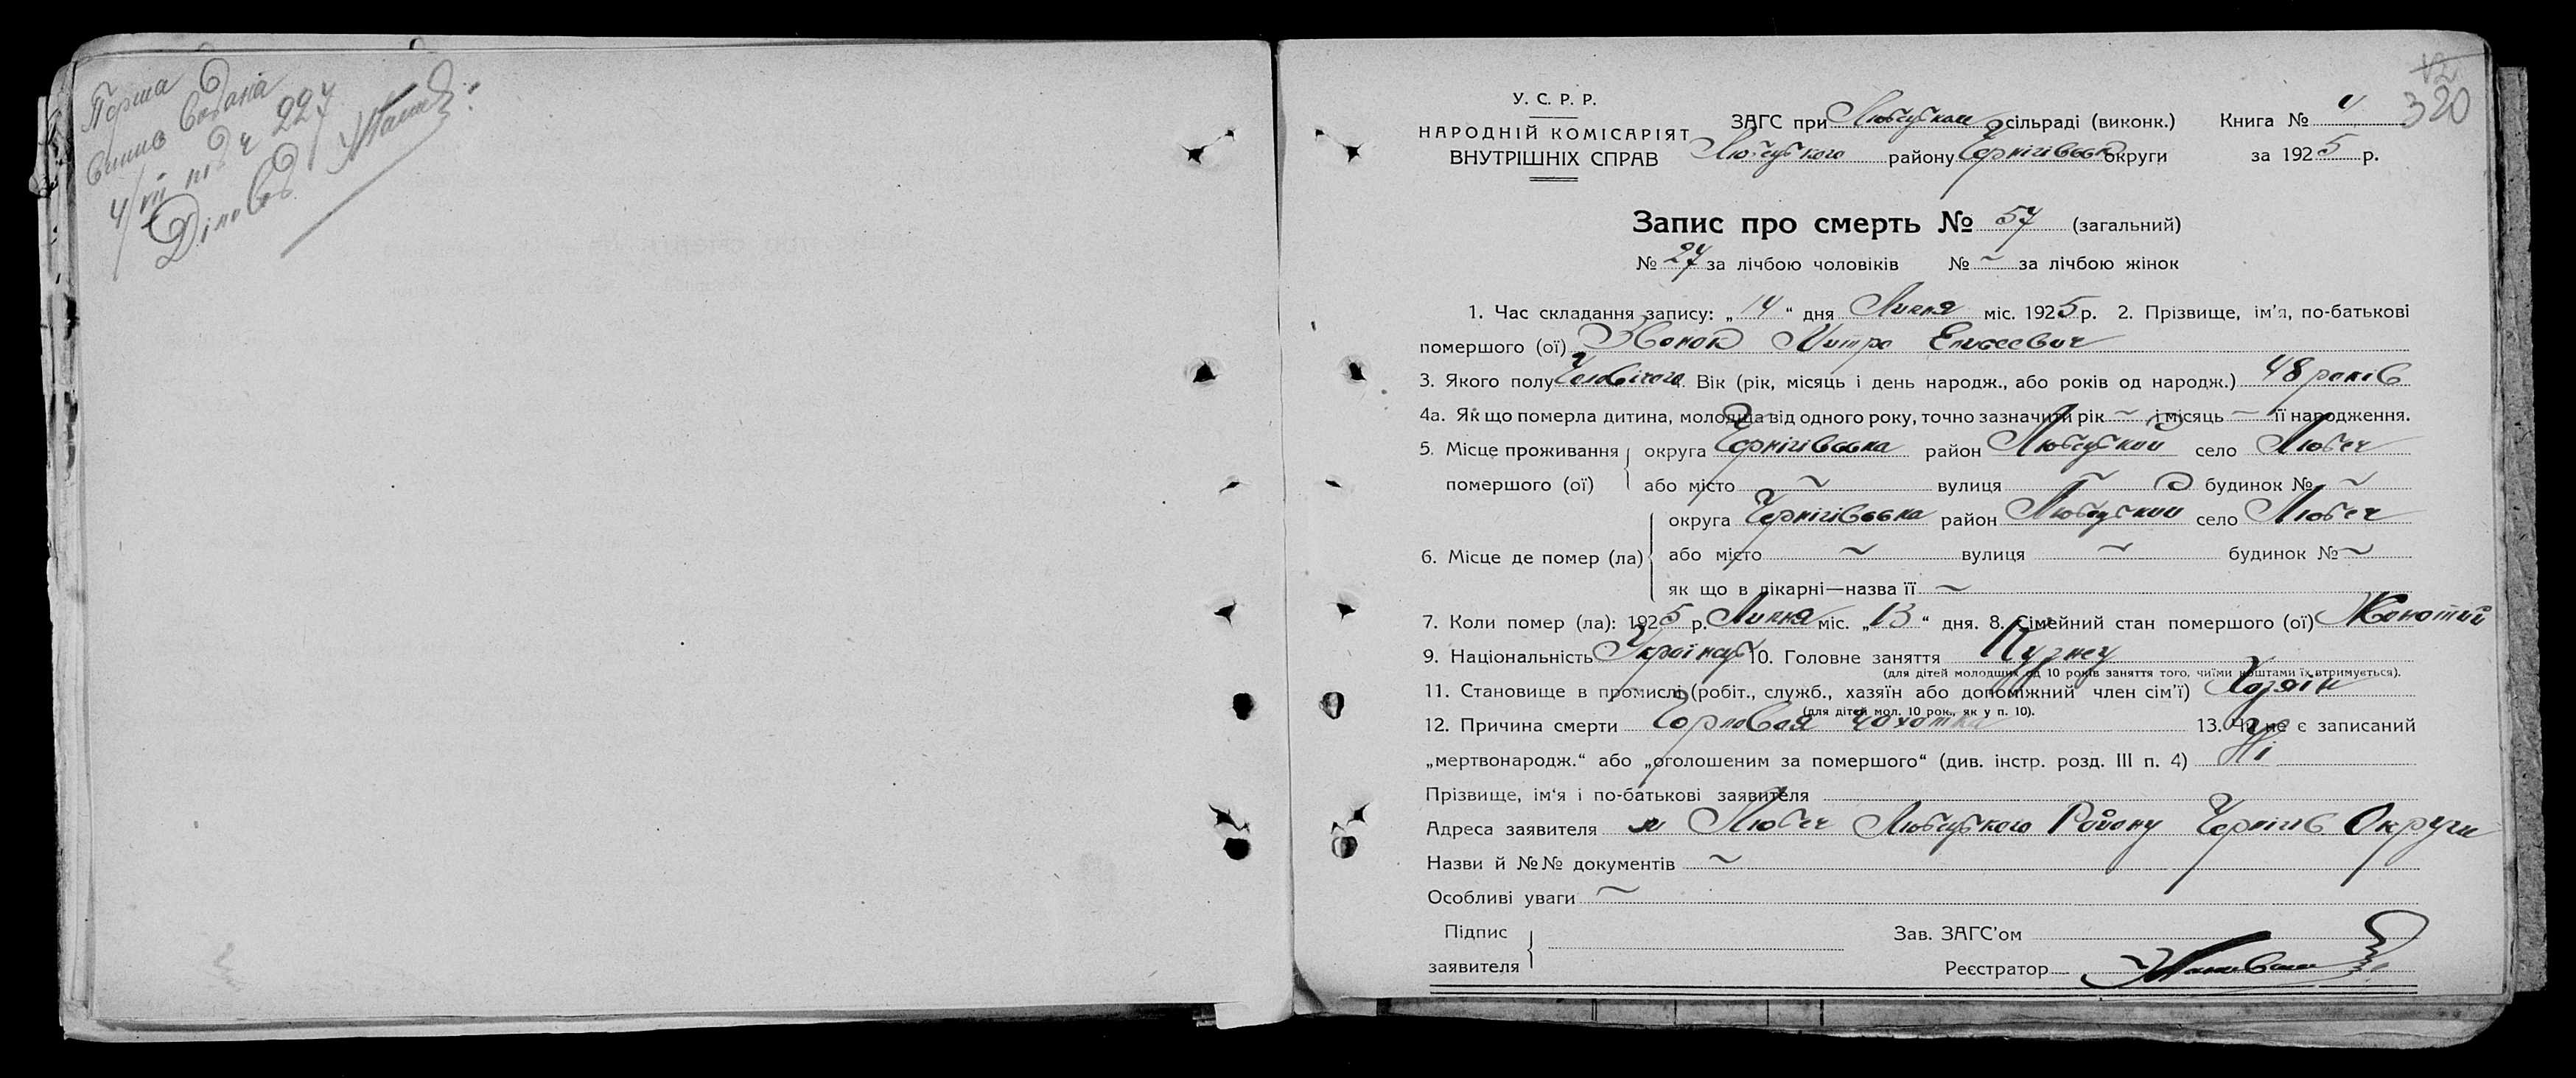 Перша
випис видана
4/VII під ч 227
Діловод
12
320
У. С. Р. Р.
НАРОДНІЙ КОМІСАРІЯТ
ВНУТРІШНІХ СПРАВ
ЗАГС при Любецьком сільраді (виконк.) Книга № 4
Любецького району Чернігівськ округи за 1925 р.
Запис про смерть № 57 (загальний)
№ 27 за лічбою чоловіків № ~ за лічбою жінок
1. Час складання запису: „ 14 “ дня Липня міс. 1925 р. 2. Прізвище, ім'я, по-батькові
помершого (ої) Митро Елисеевич
3. Якого полу Чоловічого. Вік (рік, місяць і день народж., або років од народж.) 48 років
4а. Як що померла дитина, молодша від одного року, точно зазначити рік ~ і місяць ~ її народження.
5. Місце проживання округа Чернігівська район Любецький село Любеч
помершого (ої) або місто ~ вулиця ~ будинок № ~
округа Чернігівська район Любецький село Любеч
6. Місце де помер (ла) або місто ~ вулиця ~ будинок № ~
як що в лікарні—назва її ~
7. Коли помер (ла): 1925 р. Липня міс. „ 13 “ дня. 8. Сімейний стан помершого (ої) Жонатий
9. Національність Українець 10. Головне заняття
(для дітей молодших од 10 років заняття того, чиїми коштами їх втримується).
11. Становище в промислі (робіт., служб., хазяїн або допоміжний член сім'ї) Хазяїн
(для дітей мол. 10 рок., як у п. 10).
12. Причина смерти чохотка 13. Чи не є записаний
„мертвонародж.“ або „оголошеним за помершого“ (див. інстр. розд. III п. 4) Ні
Прізвище, ім'я і по-батькові заявителя
Адреса заявителя м Любеч Любецького Району Черніг Округи
Назви й №№ документів ~
Особливі уваги ~
Підпис
заявителя
Зав. ЗАГС'ом
Реєстратор